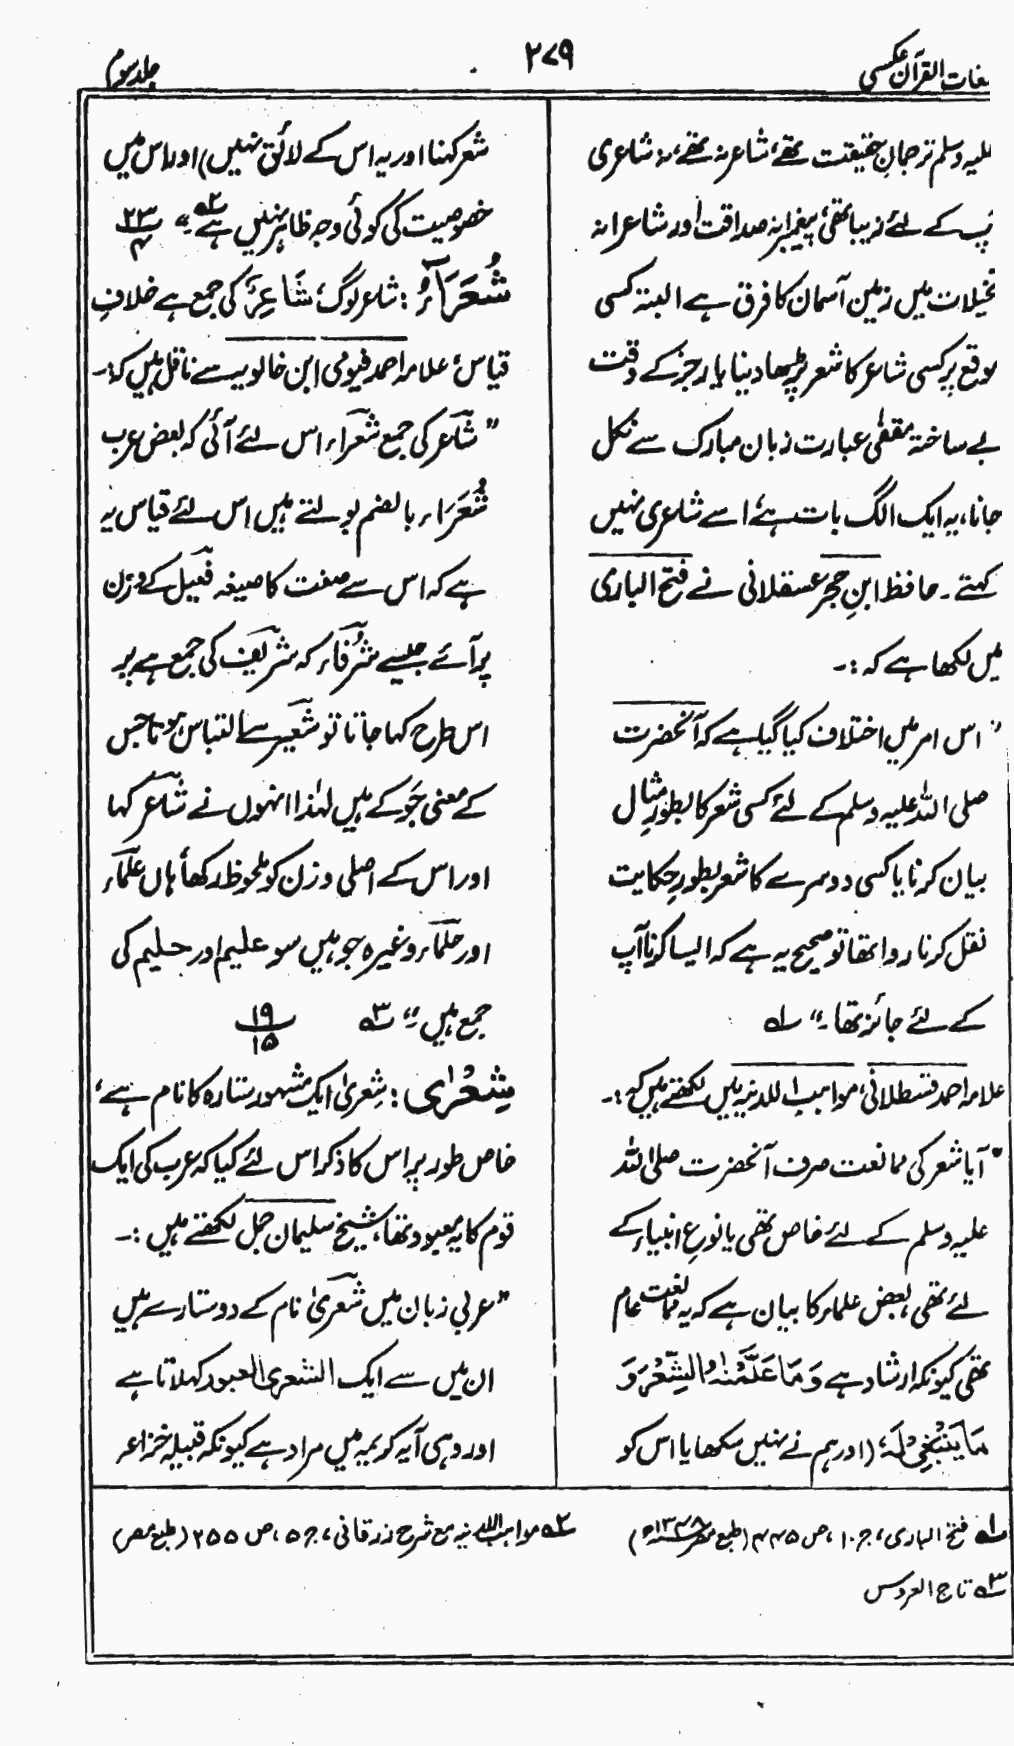 لغات القرآن عکسی
۲۷۹
جلد سوم
علیہ وسلم ترجمانِ حقیقت تھے، شاعر نہ تھے، نہ شاعری
آپ کے لئے زیبا تھی، پیغمبرانہ صداقت اور شاعرانہ
تخیلات میں زمین آسمان کا فرق ہے البتہ کسی
موقع پر کسی شاعر کا شعر پڑھا دینا یا رجز کے وقت
بے ساختہ مقفٰی عبارت زبان مبارک سے نکل
جانا، یہ ایک الگ بات ہے، اسے شاعری نہیں
کہتے۔ حافظ ابنِ حجر عسقلانی نے فتح الباری
میں لکھا ہے کہ :۔
"اس امر میں اختلاف کیا گیا ہے کہ آنحضرت
صلی اللہ علیہ وسلم کے لئے کسی شعر کا بطورِ مثال
بیان کرنا یا کسی دوسرے کا شعر بطورِ حکایت
نقل کرنا روا تھا تو صحیح یہ ہے کہ ایسا کرنا آپ
کے لئے جائز تھا۔" ۱ہ
علامہ احمد قسطلانی، مواہب اللدنیہ میں لکھتے ہیں کہ :۔
"آیا شعر کی ممانعت صرف آنحضرت صلی اللہ
علیہ وسلم کے لئے خاص تھی یا نوعِ انبیاء کے
لئے تھی، بعض علماء کا بیان ہے کہ یہ ممانعت عام
تھی کیونکہ ارشاد ہے وَمَا عَلَّمْنٰهُ الشِّعْرَ وَ
مَا يَنْبَغِي لَهٗ، (اور ہم نے نہیں سکھایا اس کو
شعر کہنا اور یہ اس کے لائق نہیں) اور اس میں
خصوصیت کی کوئی وجہ ظاہر نہیں ہے۔" ۲ہ ۲۳/۴
شُعَرَآءُ: شاعر لوگ، شَاعِرٌ کی جمع ہے خلافِ
قیاس، علامہ احمد فیومی ابن خالویہ سے ناقل ہیں کہ :۔
"شاعر کی جمع شعراء اس لئے آئی کہ بعض عرب
شُعَرَاء بالضم بولتے ہیں اس لئے قیاس یہ
ہے کہ اس سے صفت کا صیغہ فعیل کے وزن
پر آئے جیسے شرفاء کہ شریف کی جمع ہے پر
اس طرح کہا جاتا تو شعیر سے التباس ہوتا جس
کے معنی جَو کے ہیں لہٰذا انہوں نے شاعر کہا
اور اس کے اصلی وزن کو ملحوظ رکھا، ہاں علماء
اور حلماء وغیرہ جو ہیں سو علیم اور حلیم کی
جمع ہیں۔" ۳ہ ۱۹/۱۵
شِعْرٰی: شِعریٰ ایک مشہور ستارہ کا نام ہے،
خاص طور پر اس کا ذکر اس لئے کیا کہ عرب کی ایک
قوم کا یہ معبود تھا، شیخ سلیمان جمل لکھتے ہیں :۔
"عربی زبان میں شعریٰ نام کے دو ستارے ہیں
ان میں سے ایک الشعری العبور کہلاتا ہے
اور وہی آیہ کریمہ میں مراد ہے کیونکہ قبیلہ خزاعہ
۱ہ فتح الباری، ج ۱۰، ص ۴۴۵ (طبع مصر ۱۳۴۸ھ)
۲ہ مواہب اللدنیہ مع شرح زرقانی، ج ۵، ص ۲۵۵ (طبع مصر)
۳ہ تاج العروس